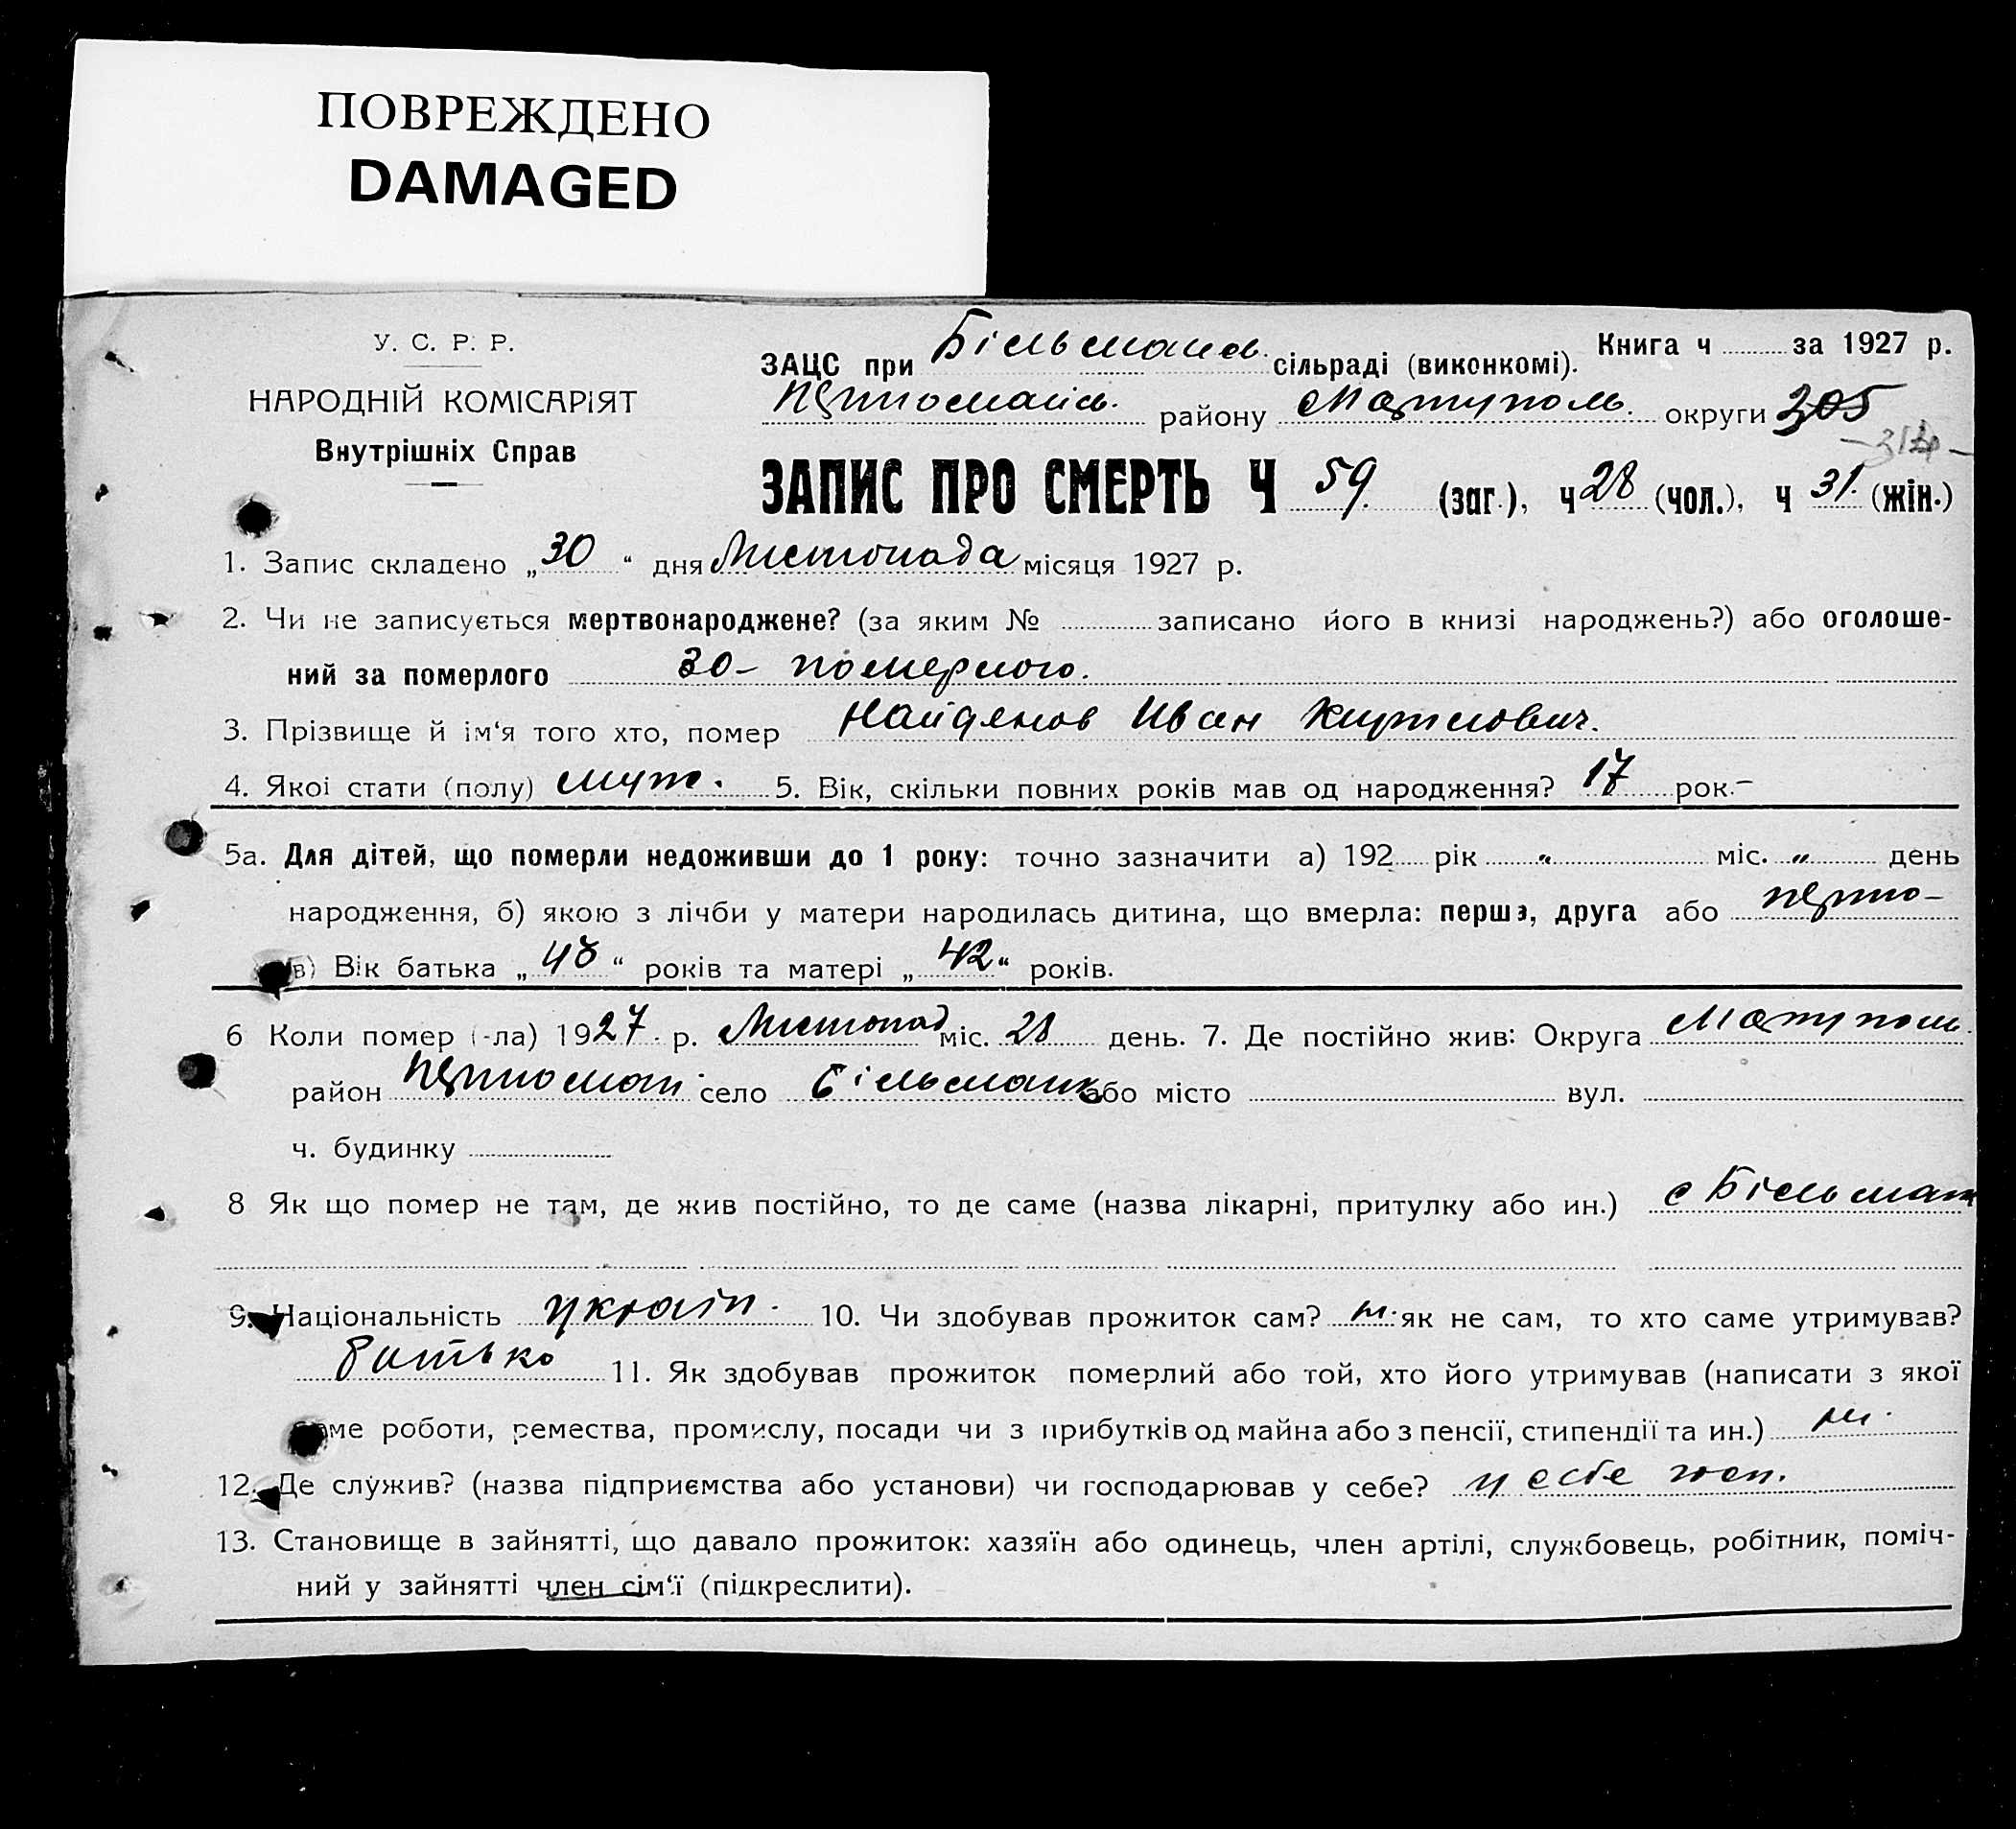 ПОВРЕЖДЕНО
DAMAGED
У. С. Р. Р.
НАРОДНІЙ КОМІСАРІЯТ
Внутрішніх Справ
ЗАЦС при Більмансь. сільраді (виконкомі). Книга ч за 1927 р.
Першомайсь. району Маріупольь. округи 305
ЗАПИС ПРО СМЕРТЬ Ч 59. (заг.), ч 28 (чол.), ч 31. (жін.)
1. Запис складено „30“ дня Листопада місяця 1927 р.
2. Чи не записується мертвонароджене? (за яким № записано його в книзі народжень?) або оголоше-
ний за померлого зо- померлого.
3. Прізвище й ім'я того хто, помер Найденов Иван
4. Якої стати (полу) муж. 5. Вік, скільки повних років мав од народження? 17 рок.–
5а. Для дітей, що померли недоживши до 1 року: точно зазначити а) 192 рік „ міс. „ день
народження, б) якою з лічби у матери народилась дитина, що вмерла: перша, друга або першо-
в) Вік батька „48“ років та матері „42“ років.
6 Коли помер (-ла) 1927. р. Листопад міс. 28 день. 7. Де постійно жив: Округа Маріуполь.
район Першомай село Більманк або місто вул.
ч. будинку
8 Як що помер не там, де жив постійно, то де саме (назва лікарні, притулку або ин.) с Більманк
9. Національність україн. 10. Чи здобував прожиток сам? ні. як не сам, то хто саме утримував?
батько 11. Як здобував прожиток померлий або той, хто його утримував (написати з якої
саме роботи, ремества, промислу, посади чи з прибутків од майна або з пенсії, стипендії та ин.) ні.
12. Де служив? (назва підприємства або установи) чи господарював у себе? у себе
13. Становище в зайнятті, що давало прожиток: хазяїн або одинець, член артілі, службовець, робітник, поміч-
ний у зайнятті член сім'ї (підкреслити).